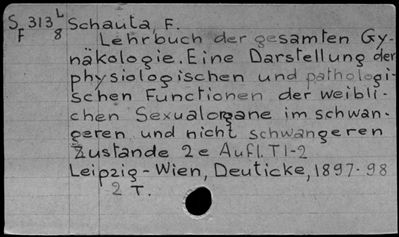 S 313 L Schauta, F.
F 8 Lehrbuch der gesamten Gy-
näkologie. Eine Darstellung der
physiologischen und pathologi-
schen Functionen der weibli-
chen Sexualorgane im schwan-
geren und nicht schwangeren
Zustande 2e Aufl. T 1-2
Leipzig - Wien, Deuticke, 1897-98
2 T.